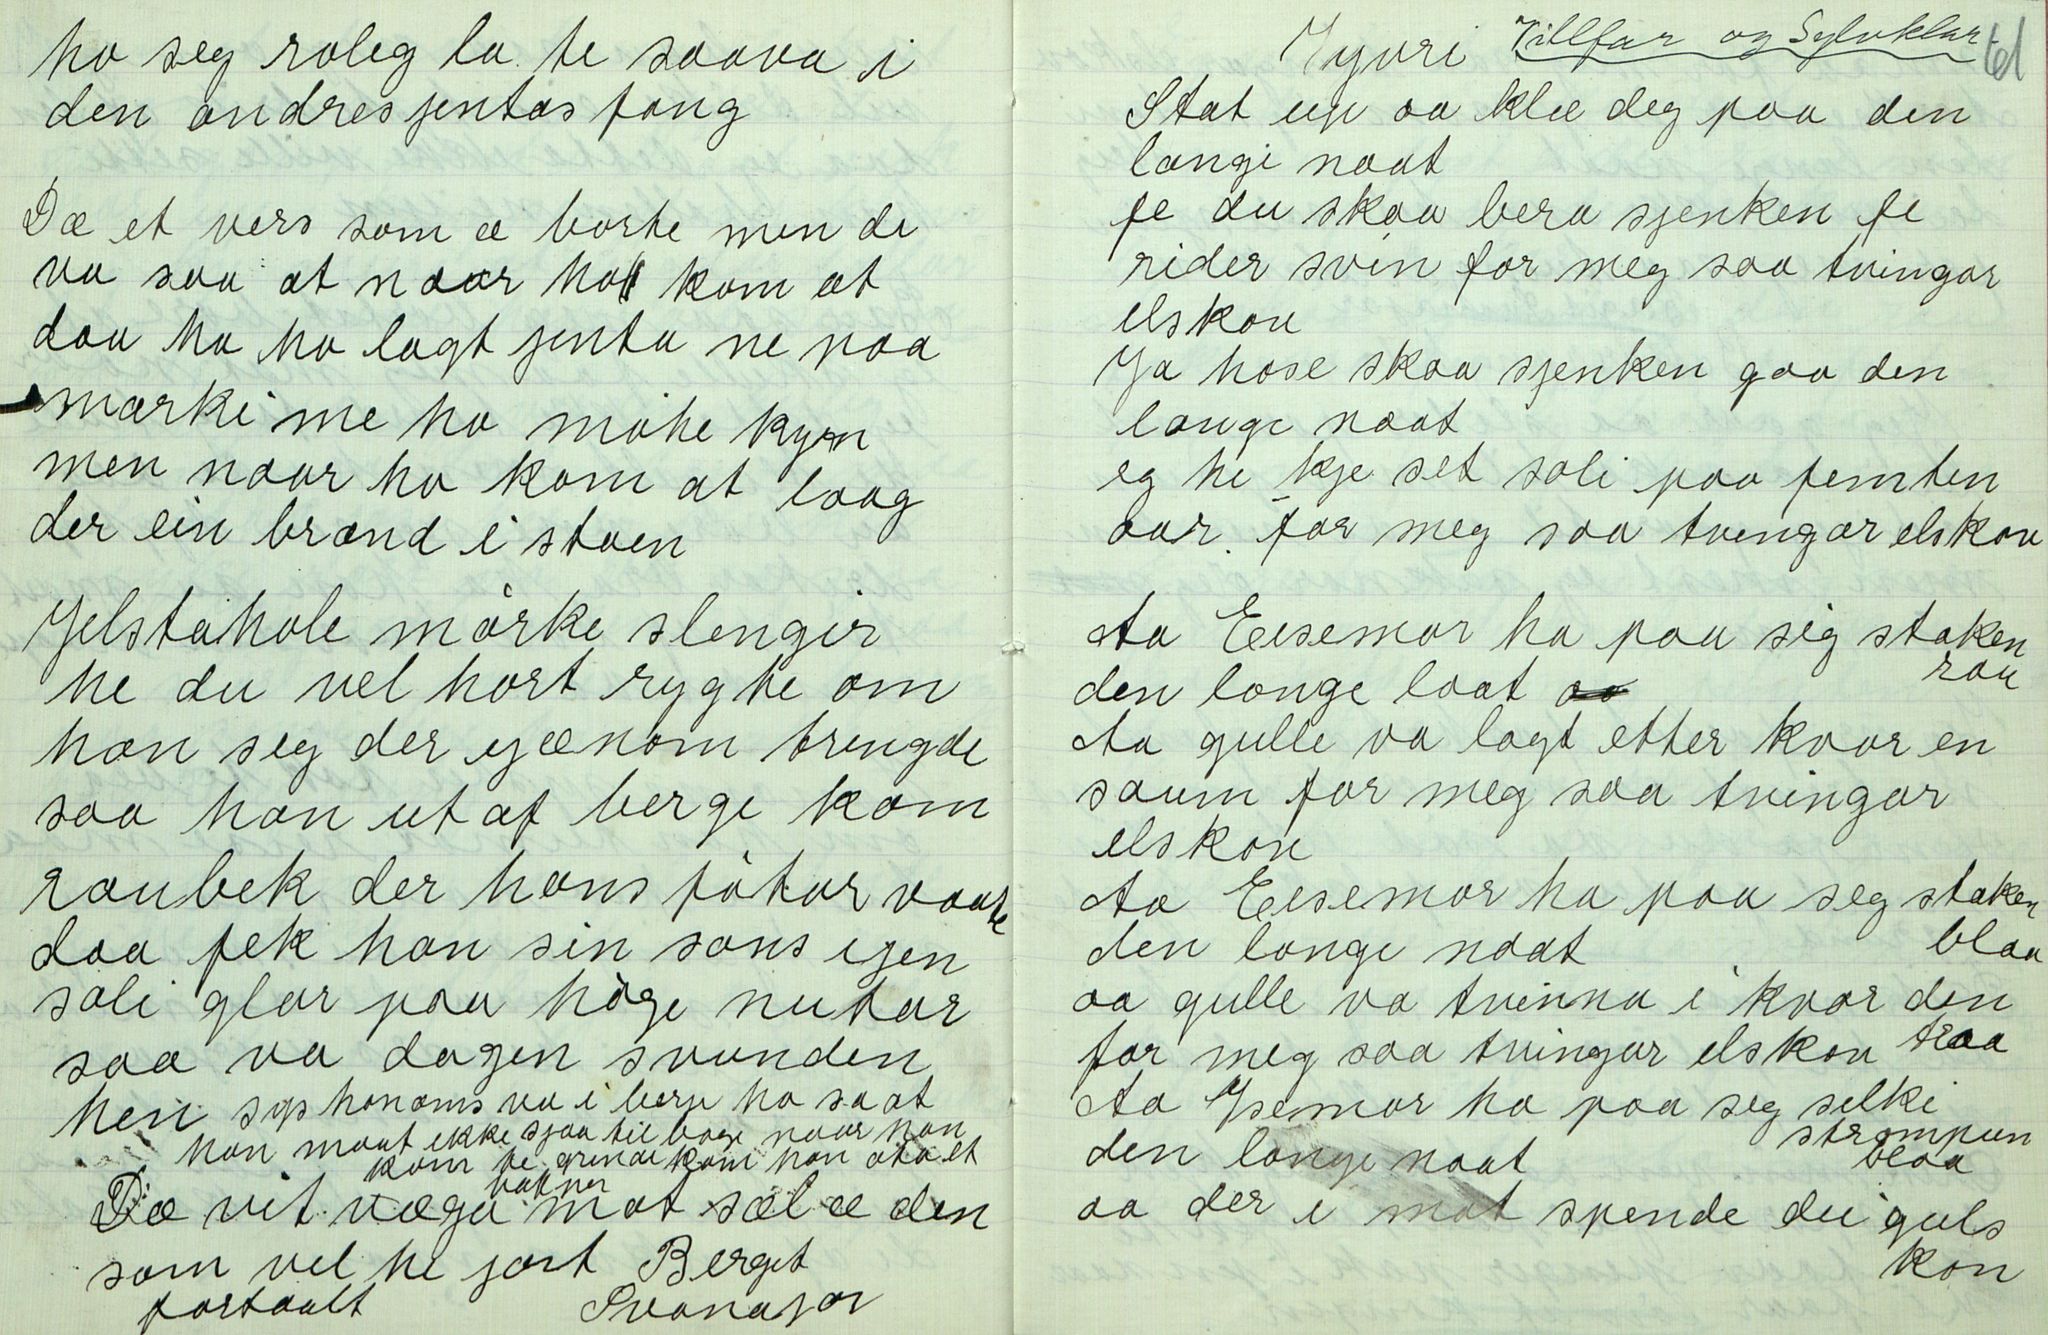 ho seg roleg la te saava i
den andres jentas fang
Dæ et vers som æ borte men de
va saa at naar ho kom at
daa ho ha lagt jenta ne paa
marki me ho måtte kyrn
men naar ho kom at laag
der ein brand i stoen
Jelstahole mårke slengir
he du vel hort rygte om
han seg der gjænom trengde
saa han ut af berge kom
raubek der hans fåtar vaate
daa fek han sin sans igen
soli glar paa håge nutar
saa va dagen svunden
hen syshonoms va i berje ha sa at
han maat ikke sjaa tilbage naar han
kom te grindi kom han ata et
Dæ vit vægu mot sæl æ den
som vel he jort Berget
fortaalt Svanajor
Iyvri Villfar og Sylvklar 61
Stat up aa klæ deg paa den
langi naat
fe du skaa bera sjenken fe
rider svin for meg saa tvingar
elskou
Ja hose skaa sjenken gaa den
lange naat
eg he kje set soli paa femten
aar. for meg saa tvingar elskou
Aa Eisemor ha paa sig staken
rau
den lange laat
Aa gulle va lagt etter kvar en
saum for meg saa tvingar
elskou
Aa Eisemor ha paa seg staken
blaa
den lange naat
aa gulle va tvinna i kvar den
traa
for meg saa tvingar elskou
Aa Isemor ha paa seg silki
strompun
blaa
den lange naat
aa der i mot spende dei guls
kon